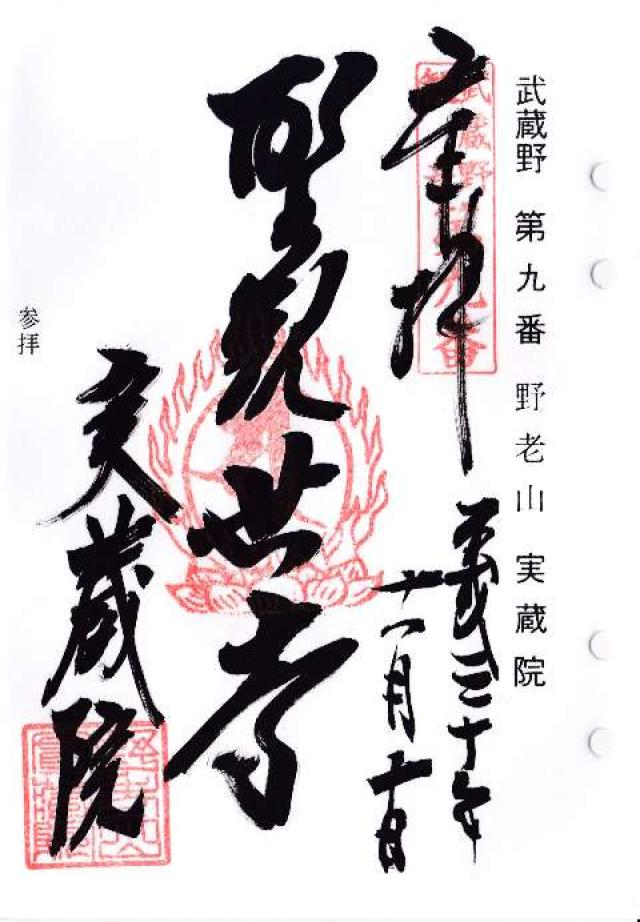 武蔵野 第九番 野老山 実蔵院
奉拝
武蔵野第九番
平成三十年
十一月十一日
聖観世音
実蔵院
参拝